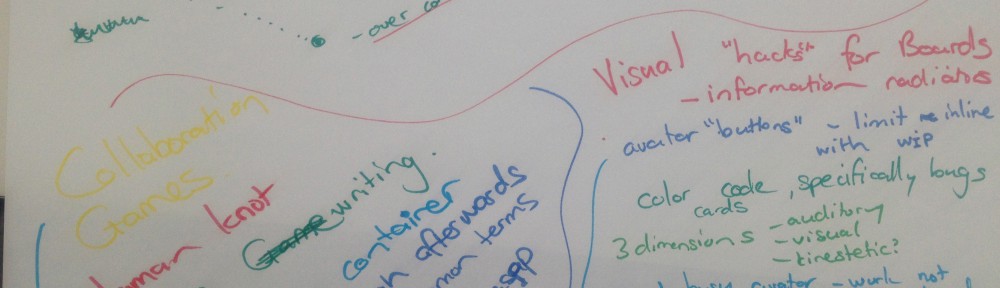 - over
Collaboration
Games
human knot
writing.
container
afterwords
terms
Visual "hacks" for Boards
- information radiators
avater "buttons" - limit inline
with wip
color code, specifically bugs
cards
3 dimensions - auditory
- visual
- kinestetic?
avator - work not